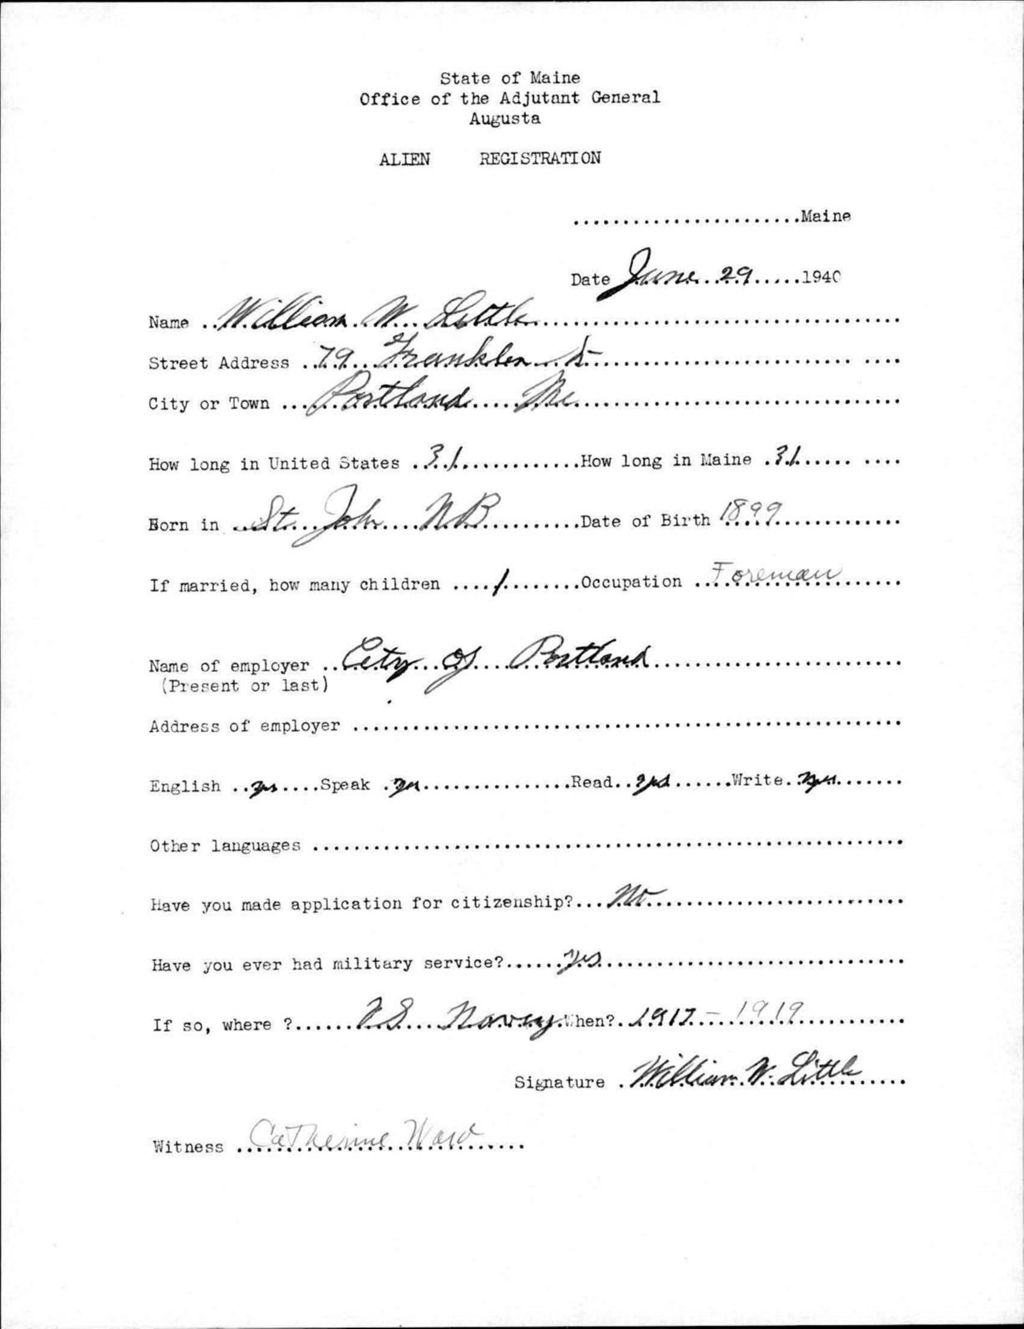 State of Maine
Office of the Adjutant General
Augusta
ALIEN REGISTRATION
.......................Maine
Date June 29.....1940
Name ..William W. Little....................................
Street Address ..79 Franklin St..............................
City or Town ...Portland Me................................
How long in United States .31............How long in Maine .31..........
Born in ..St. John N B.........Date of Birth 1899............
If married, how many children ....1........Occupation ..Foreman......
Name of employer ..City of Portland.........................
(Present or last)
Address of employer .......................................................
English ..yes....Speak .yes...............Read..yes......Write..yes.......
Other languages ...........................................................
Have you made application for citizenship?...No..........................
Have you ever had military service?......yes..............................
If so, where ?......U.S. Navey.When?.1917.-.1919............
Signature .William W. Little.....
Witness ..Catherine Ward.....